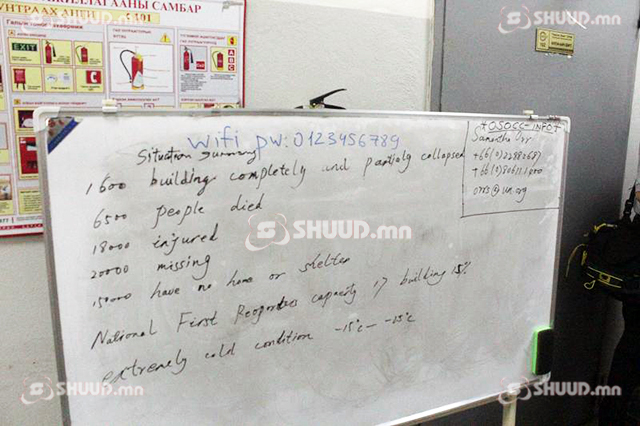 ЖИЛЛАГААНЫ САМБАР
УНТРААХ
5401
EXIT
A
B
C
SHUUD.mn
SHUUD.mn
wifi pw: 0123456789
Situation summary
1600 building completely and partialy collapsed
6500 people died
18000 injured
20000 missing
150000 have no home or shelter
National First capacity 17 building 15%
extremely cold condition -15°c - -25°c
OSOCC INFO
Samantha Orr
orrs@un.org
SHUUD.mn
SHUUD.mn
SHUUD.mn
SHUUD.mn